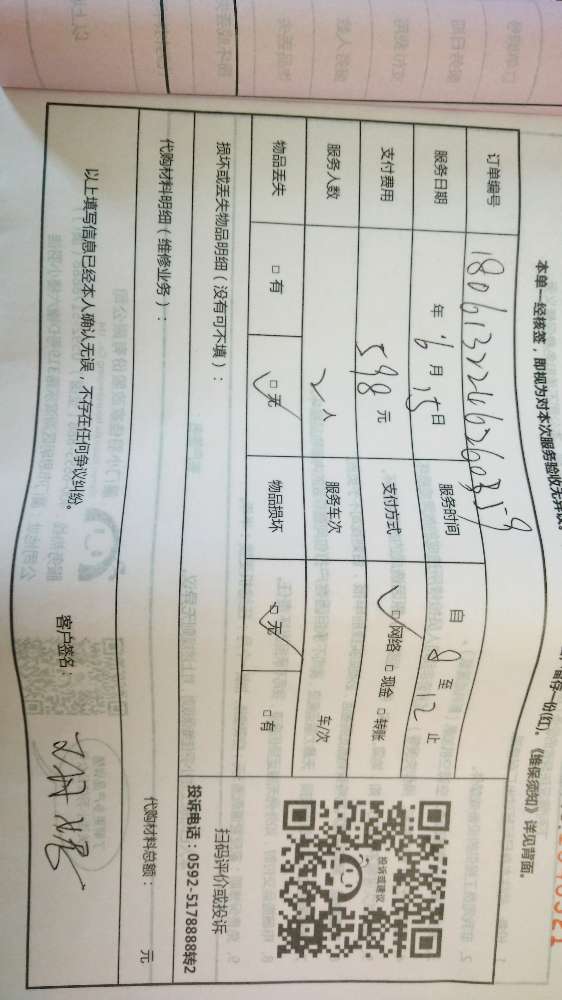 本单一经核签，即视为对本次服务验收无异议
留存一份(红)。《维保须知》详见背面。
订单编号
服务日期 年 6 月 15 日 服务时间 自 8 至 12 止
支付费用 598 元 支付方式 ✓ 网络 □ 现金 □ 转账
服务人数 2 人 服务车次 车/次
物品丢失 □ 有 □ 无 ✓ 物品损坏 □ 无 ✓ □ 有
损坏或丢失物品明细（没有可不填）：
投诉或建议
扫码评价或投诉
投诉电话：0592-5178888转2
代购材料明细（维修业务）： 代购材料总额： 元
以上填写信息已经本人确认无误，不存在任何争议纠纷。
客户签名：